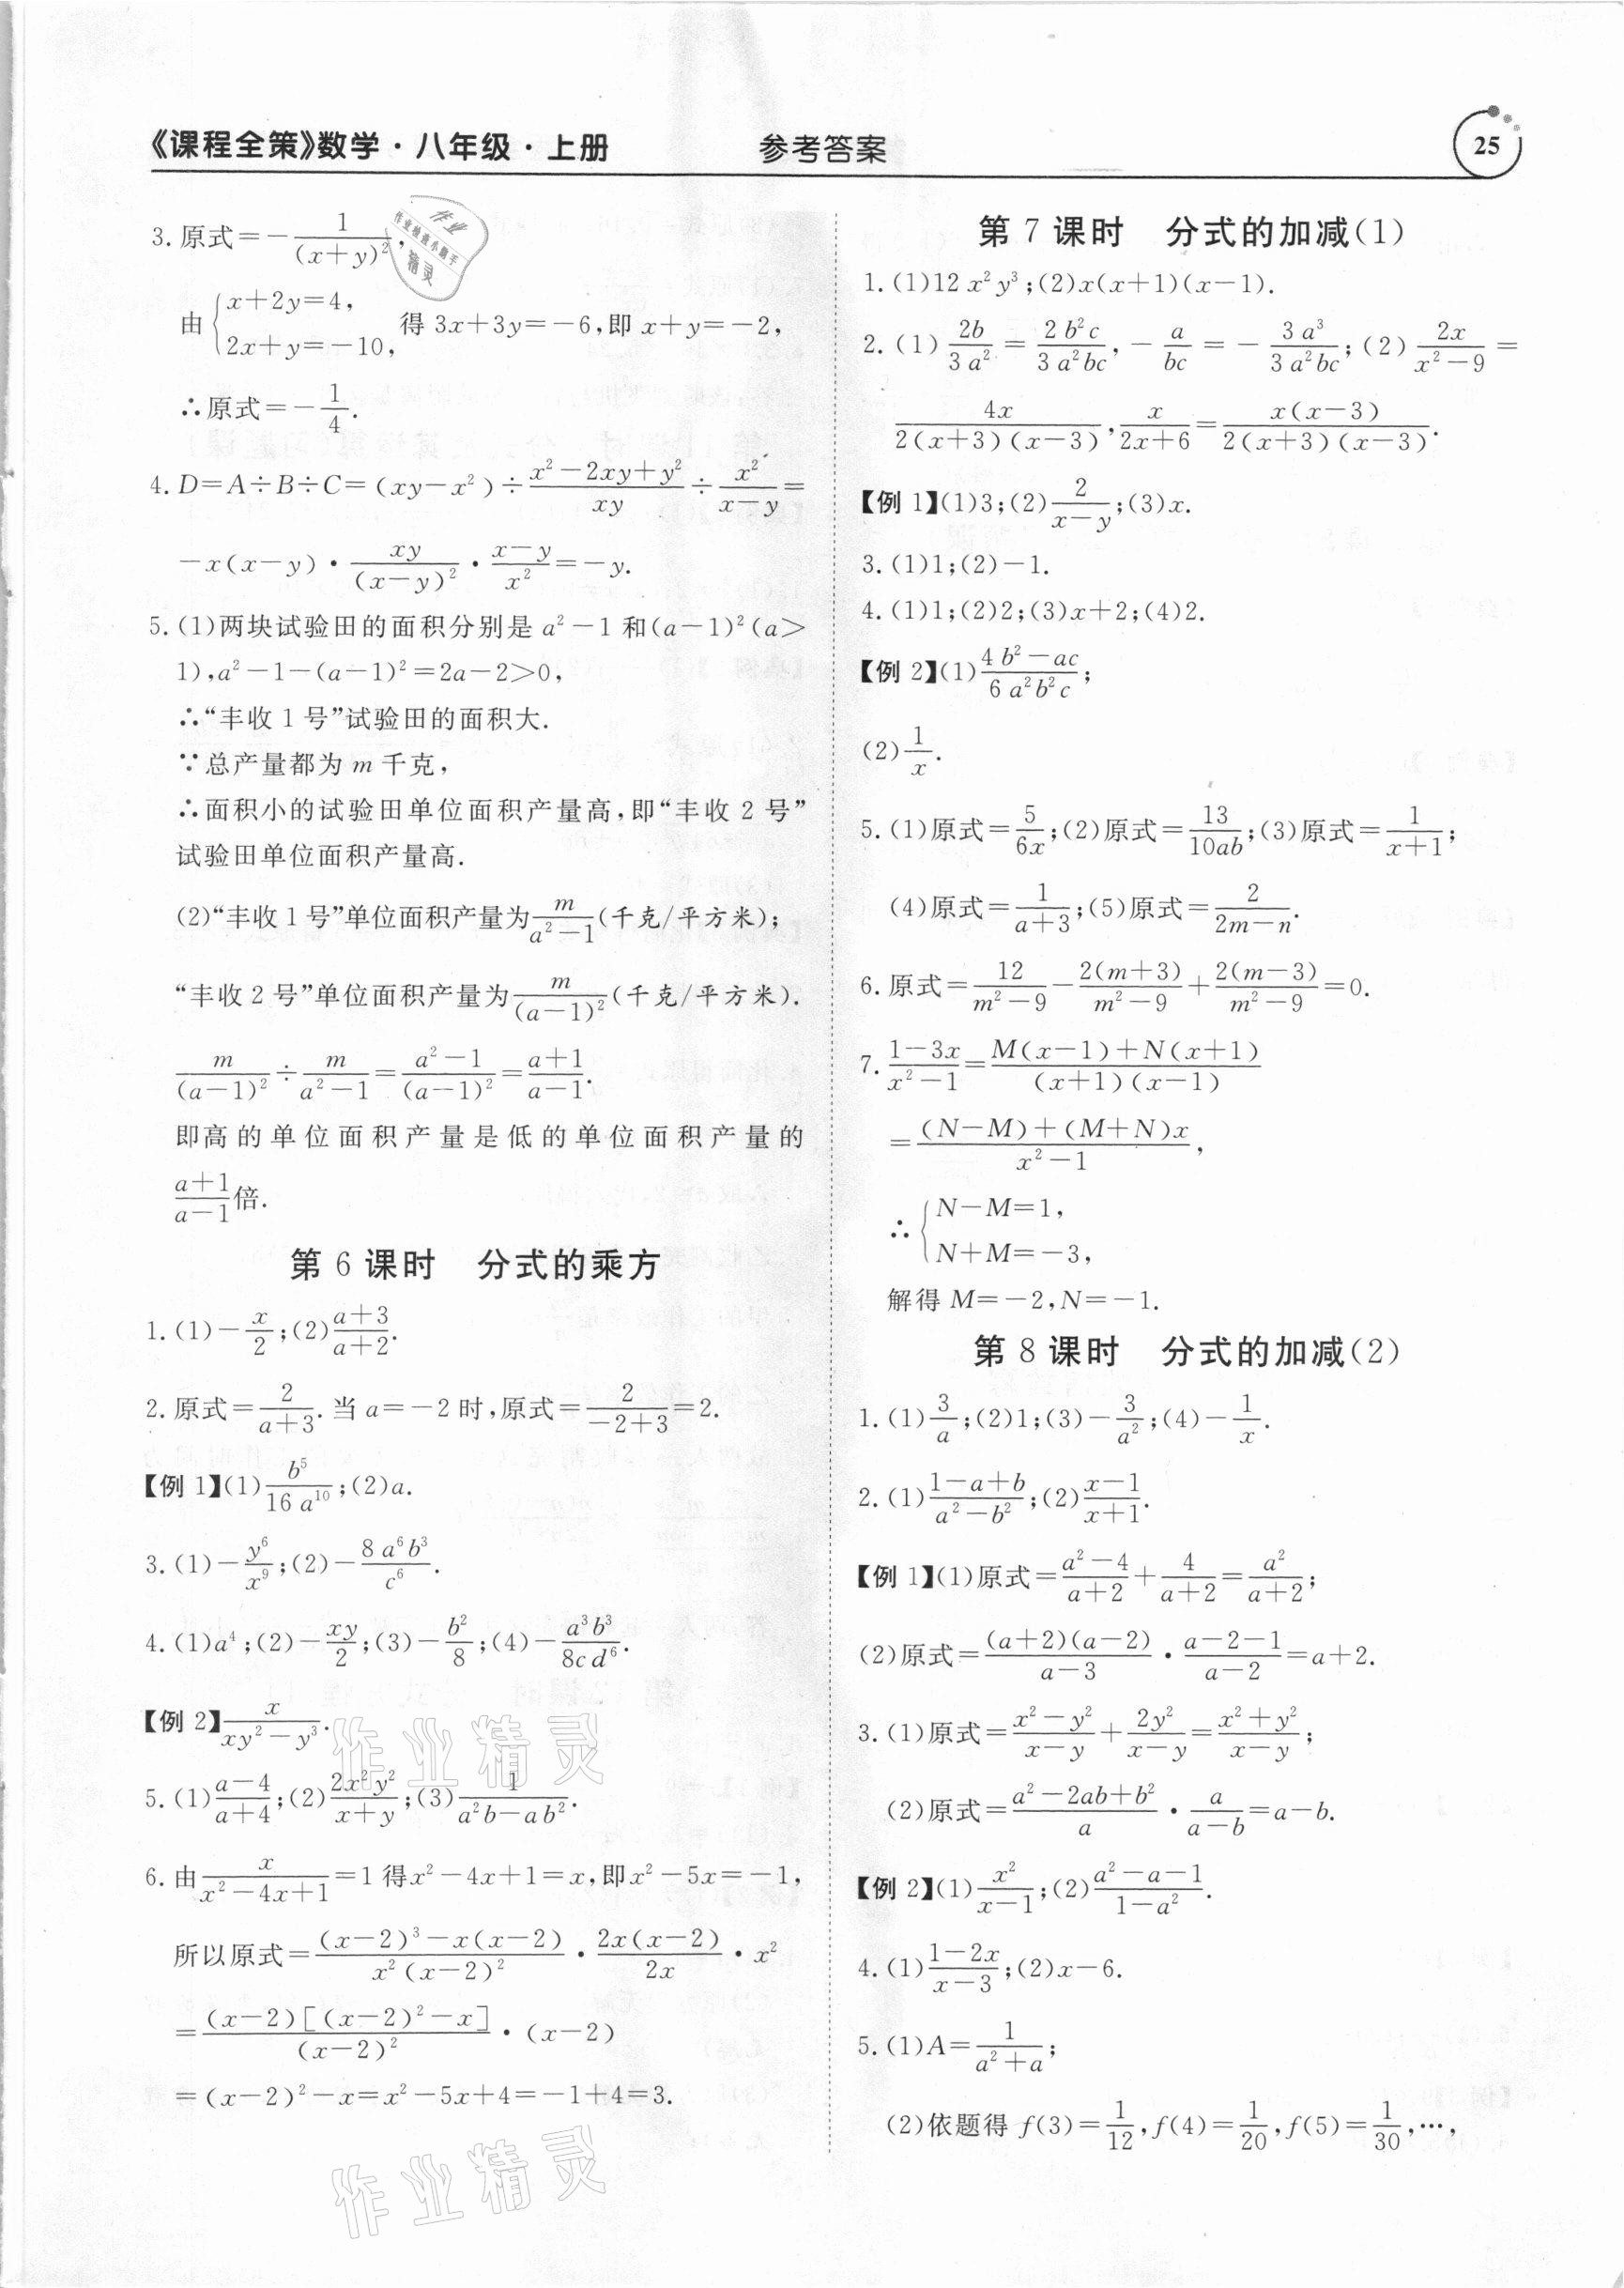 《课程全策》数学·八年级·上册 参考答案 25
3.原式=-1/(x+y)²,
由{x+2y=4, 2x+y=-10, 得3x+3y=-6,即x+y=-2,
∴原式=-1/4.
4.D=A÷B÷C=(xy-x²)÷(x²-2xy+y²)/(xy)÷x²/(x-y)=
-x(x-y)·xy/(x-y)²·(x-y)/x²=-y.
5.(1)两块试验田的面积分别是a²-1和(a-1)²(a>
1),a²-1-(a-1)²=2a-2>0,
∴“丰收1号”试验田的面积大.
∵总产量都为m千克,
∴面积小的试验田单位面积产量高,即“丰收2号”
试验田单位面积产量高.
(2)“丰收1号”单位面积产量为m/(a²-1)(千克/平方米);
“丰收2号”单位面积产量为m/(a-1)²(千克/平方米).
m/(a-1)²÷m/(a²-1)=(a²-1)/(a-1)²=(a+1)/(a-1).
即高的单位面积产量是低的单位面积产量的
(a+1)/(a-1)倍.
第6课时 分式的乘方
1.(1)-x/2;(2)(a+3)/(a+2).
2.原式=2/(a+3).当a=-2时,原式=2/(-2+3)=2.
【例1】(1)b⁵/(16a¹⁰);(2)a.
3.(1)-y⁶/x⁹;(2)-8a⁶b³/c⁶.
4.(1)a⁴;(2)-xy/2;(3)-b²/8;(4)-a³b³/(8cd⁶).
【例2】x/(xy²-y³).
5.(1)(a-4)/(a+4);(2)2x²y²/(x+y);(3)1/(a²b-ab²).
6.由x/(x²-4x+1)=1得x²-4x+1=x,即x²-5x=-1,
所以原式=[(x-2)³-x(x-2)]/[x²(x-2)²]·2x(x-2)/(2x)·x²
=(x-2)[(x-2)²-x]/(x-2)²·(x-2)
=(x-2)²-x=x²-5x+4=-1+4=3.
第7课时 分式的加减(1)
1.(1)12x²y³;(2)x(x+1)(x-1).
2.(1)2b/(3a²)=2b²c/(3a²bc),-a/(bc)=-3a³/(3a²bc);(2)2x/(x²-9)=
4x/[2(x+3)(x-3)],x/(2x+6)=x(x-3)/[2(x+3)(x-3)].
【例1】(1)3;(2)2/(x-y);(3)x.
3.(1)1;(2)-1.
4.(1)1;(2)2;(3)x+2;(4)2.
【例2】(1)(4b²-ac)/(6a²b²c);
(2)1/x.
5.(1)原式=5/(6x);(2)原式=13/(10ab);(3)原式=1/(x+1);
(4)原式=1/(a+3);(5)原式=2/(2m-n).
6.原式=12/(m²-9)-2(m+3)/(m²-9)+2(m-3)/(m²-9)=0.
7.(1-3x)/(x²-1)=[M(x-1)+N(x+1)]/[(x+1)(x-1)]
=[(N-M)+(M+N)x]/(x²-1),
∴{N-M=1, N+M=-3,
解得M=-2,N=-1.
第8课时 分式的加减(2)
1.(1)3/a;(2)1;(3)-3/a²;(4)-1/x.
2.(1)(1-a+b)/(a²-b²);(2)(x-1)/(x+1).
【例1】(1)原式=(a²-4)/(a+2)+4/(a+2)=a²/(a+2);
(2)原式=(a+2)(a-2)/(a-3)·(a-2-1)/(a-2)=a+2.
3.(1)原式=(x²-y²)/(x-y)+2y²/(x-y)=(x²+y²)/(x-y);
(2)原式=(a²-2ab+b²)/a·a/(a-b)=a-b.
【例2】(1)x²/(x-1);(2)(a²-a-1)/(1-a²).
4.(1)(1-2x)/(x-3);(2)x-6.
5.(1)A=1/(a²+a);
(2)依题得f(3)=1/12,f(4)=1/20,f(5)=1/30,…,
作业精灵
作业精灵